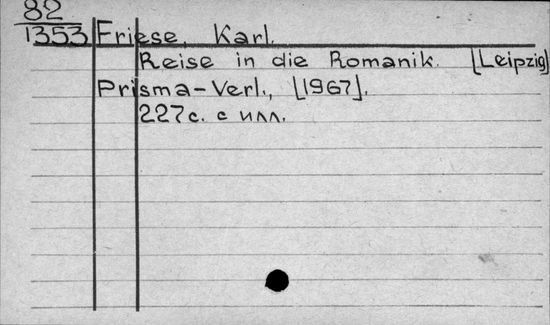 82
1353 Friese, Karl.
Reise in die Romanik. [Leipzig]
Prisma-Verl., [1967].
227с. с илл.